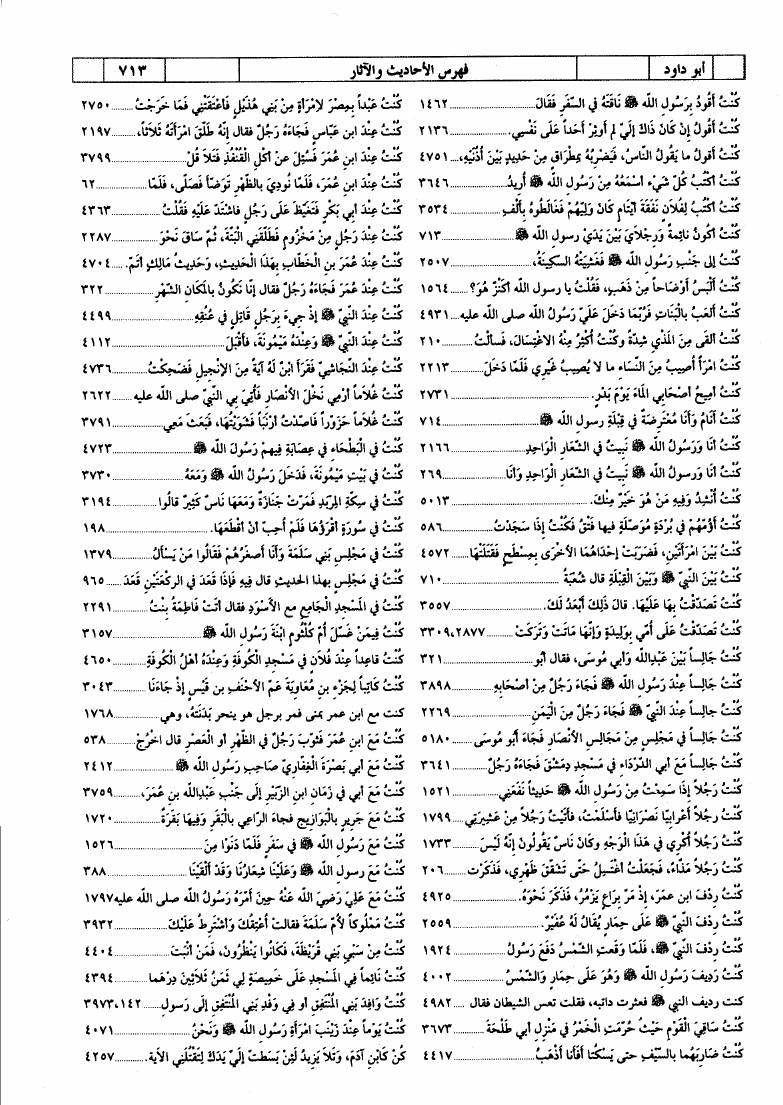 أبو داود فهرس الأحاديث والآثار ٧١٣
كُنْتُ أقُودُ بِرَسُولِ الله ﷺ نَاقَتَهُ في السَّفَرِ فَقَالَ ١٤٦٢
كُنْتُ أقُولُ إِنْ كَانَ ذَاكَ إِلَيَّ لم أُوثِرْ أحَداً عَلَى نَفْسِي. ٢١٣٦
كُنْتُ أقولُ ما يَقُولُ النَّاسُ، فَيَضْرِبُهُ بِمِطْرَاقٍ مِنْ حَدِيدٍ بَيْنَ أُذُنَيْهِ، ٤٧٥١
كُنْتُ أكْتُبُ كُلَّ شَيْءٍ أسْمَعُهُ مِنْ رَسُولِ الله ﷺ أُرِيدُ ٣٦٤٦
كُنْتُ أكْتُبُ لِفُلَانٍ نَفَقَةَ أيْتَامٍ كَانَ وَلِيَّهُمْ فَغَالَطُوهُ بِألْفِ ٣٥٣٤
كُنْتُ أكُونُ نَائِمةً وَرِجْلَايَ بَيْنَ يَدَيْ رسولِ الله ﷺ ٧١٣
كُنْتُ إلى جَنْبِ رَسُولِ الله ﷺ فَغَشِيَتْهُ السَّكِينَةُ، ٢٥٠٧
كُنْتُ ألْبَسُ أوْضَاحاً مِنْ ذَهَبٍ، فَقُلْتُ يا رسولَ الله أكَنْزٌ هُوَ؟ ١٥٦٤
كُنْتُ ألْعَبُ بالْبَنَاتِ فَرُبَّمَا دَخَلَ عَلَيَّ رَسُولُ الله صلى الله عليه ٤٩٣١
كُنْتُ ألقى مِنَ المَذْيِ شِدَّةً وكُنْتُ أُكْثِرُ مِنْهُ الاغْتِسَالَ، فَسألْتُ ٢١٠
كُنْتُ امْرَأً أُصِيبُ مِنَ النِّسَاءِ ما لا يُصِيبُ غَيْرِي فَلَمَّا دَخَلَ ٢٢١٣
كُنْتُ أمِيحُ أصْحَابِي المَاءَ يَوْمَ بَدْرٍ. ٢٧٣١
كُنْتُ أنَامُ وَأنَا مُعْتَرِضَةٌ في قِبْلَةِ رسولِ الله ﷺ ٧١٤
كُنْتُ أنا وَرَسُولُ الله ﷺ نَبِيتُ في الشِّعَارِ الْوَاحِدِ ٢١٦٦
كُنْتُ أنا وَرسولُ الله ﷺ نَبِيتُ في الشِّعَارِ الْوَاحِدِ وَأنَا ٢٦٩
كُنْتُ أُنْشِدُ وَفِيهِ مَنْ هُوَ خَيْرٌ مِنْكَ. ٥٠١٣
كُنْتُ أؤُمُّهُمْ في بُرْدَةٍ مُوَصَّلَةٍ فيها فَتْقٌ فَكُنْتُ إذَا سَجَدْتُ ٥٨٦
كُنْتُ بَيْنَ امْرَأتَيْنِ، فَضَرَبَتْ إحْدَاهُمَا الأخْرَى بِمِسْطَحٍ فَقَتَلَتْهَا ٤٥٧٢
كُنْتُ بَيْنَ النَّبيِّ ﷺ وَبَيْنَ القِبْلَةِ قال شُعْبَةُ ٧١٠
كُنْتُ تَصَدَّقْتُ بِهَا عَلَيْهَا. قالَ ذَلِكَ أبْعَدُ لَكَ. ٣٥٥٧
كُنْتُ تَصَدَّقْتُ عَلَى أُمِّي بِوَلِيدَةٍ وَإنَّهَا مَاتَتْ وَتَرَكَتْ ٢٨٧٧، ٣٣٠٩
كُنْتُ جَالِساً بَيْنَ عَبْدِالله وَأبي مُوسَى، فقال أبو ٣٢١
كُنْتُ جَالِساً عِنْدَ رَسُولِ الله ﷺ فَجَاءَ رَجُلٌ مِنْ أصْحَابِهِ ٣٨٩٨
كُنْتُ جَالِساً عِنْدَ النَّبيِّ ﷺ فَجَاءَ رَجُلٌ مِنَ الْيَمَنِ ٢٢٦٩
كُنْتُ جَالِساً في مَجْلِسٍ مِنْ مَجَالِسِ الأنْصَارِ فَجَاءَ أبُو مُوسَى ٥١٨٠
كُنْتُ جَالِساً مَعَ أبي الدَّرْدَاءِ في مَسْجِدِ دِمَشْقَ فَجَاءَهُ رَجُلٌ ٣٦٤١
كُنْتُ رَجُلاً إذَا سَمِعْتُ مِنْ رَسُولِ الله ﷺ حَدِيثاً نَفَعَنِي ١٥٢١
كُنْتُ رجُلاً أعْرَابِيا نَصْرَانِيًّا فأَسْلَمْتُ، فأتَيْتُ رَجُلاً مِنْ عَشِيرَتِي ١٧٩٩
كُنْتُ رَجُلاً أُكْرِي في هَذَا الْوَجْهِ وكَانَ نَاسٌ يَقُولُونَ إنَّهُ لَيْسَ ١٧٣٣
كُنْتُ رَجُلاً مَذَّاءً، فَجَعَلْتُ أغْتَسِلُ حتَّى تَشَقَّقَ ظَهْرِي، فَذَكَرْتُ ٢٠٦
كُنْتُ رِدْفَ ابن عمَرَ، إذْ مَرَّ بِرَاعٍ يَزْمُرُ، فَذَكَرَ نَحْوَهُ. ٤٩٢٥
كُنْتُ رِدْفَ النَّبيِّ ﷺ عَلَى حِمَارٍ يُقَالُ لَهُ عُفَيْرٌ. ٢٥٥٩
كُنْتُ رِدْفَ النَّبيِّ ﷺ، فَلَمَّا وَقَعَتِ الشَّمْسُ دَفَعَ رَسُولُ ١٩٢٤
كُنْتُ رَدِيفَ رَسُولِ الله ﷺ وَهُوَ عَلَى حِمَارٍ وَالشَّمْسُ ٤٠٠٢
كنت رديف النبي ﷺ فعثرت دابته، فقلت تعس الشيطان فقال ٤٩٨٢
كُنْتُ سَاقِيَ الْقَوْمِ حَيْثُ حُرِّمَتِ الْخَمْرُ في مَنْزِلِ أبي طَلْحَةَ ٣٦٧٣
كُنْتُ ضَارِبَهُما بالسَّيْفِ حتى يَسْكُتا أفَأنَا أذْهَبُ ٤٤١٧
كُنْتُ عَبْداً بِمِصْرَ لامْرَأةٍ مِنْ بَنِي هُذَيْلٍ فَأعْتَقَتْنِي فَمَا خَرَجْتُ ٢٧٥٠
كُنْتُ عِنْدَ ابنِ عَبَّاسٍ فَجَاءَهُ رَجُلٌ فقال إنَّهُ طَلَّقَ امْرَأتَهُ ثَلَاثاً، ٢١٩٧
كُنْتُ عِنْدَ ابن عُمَرَ فَسُئِلَ عنْ أكْلِ الْقُنْفُذِ فَتَلَا قُلْ ٣٧٩٩
كُنْتُ عِنْدَ ابن عُمَرَ، فَلَمَّا نُودِيَ بالظُّهْرِ تَوَضَّأ فَصَلَّى، فَلَمَّا ٦٢
كُنْتُ عِنْدَ أبي بَكْرٍ فَتَغَيَّظَ عَلَى رَجُلٍ فاشْتَدَّ عَلَيْهِ فَقُلْتُ ٤٣٦٣
كُنْتُ عِنْدَ رَجُلٍ مِنْ مَخْزُومٍ فَطَلَّقَنِي الْبَتَّةَ، ثُمَّ سَاقَ نَحْوَ ٢٢٨٧
كُنْتُ عِنْدَ عُمَرَ بنِ الْخَطَّابِ بِهَذَا الْحَدِيثِ، وَحَدِيثُ مَالِكٍ أتَمّ. ٤٧٠٤
كُنْتُ عِنْدَ عُمَرَ فَجَاءَهُ رَجُلٌ فقال إنَّا نَكُونُ بالمَكَانِ الشَّهْرَ ٣٢٢
كُنْتُ عِنْدَ النَّبيِّ ﷺ إذْ جِيءَ بِرَجُلٍ قَاتِلٍ في عُنُقِهِ ٤٤٩٩
كُنْتُ عِنْدَ النَّبيِّ ﷺ وَعِنْدَهُ مَيْمُونَةُ، فَأقْبَلَ ٤١١٢
كُنْتُ عِنْدَ النَّجَّاشِيِّ فَقَرَأ ابْنٌ لَهُ آيَةً مِنَ الإنْجِيلِ فَضَحِكْتُ ٤٧٣٦
كُنْتُ غُلَاماً أرْمِي نَخْلَ الأنْصَارِ فَأُتِيَ بِي النَّبيَّ صلى الله عليه ٢٦٢٢
كُنْتُ غُلَاماً حَزَوَّراً فَاصَّدْتُ أرْنَباً فَشَوَيْتُهَا، فَبَعَثَ مَعِي ٣٧٩١
كُنْتُ في الْبَطْحَاءِ في عِصَابَةٍ فِيهِمْ رَسُولُ الله ﷺ ٤٧٢٣
كُنْتُ في بَيْتِ مَيْمُونَةَ، فَدَخَلَ رَسُولُ الله ﷺ وَمَعَهُ ٣٧٣٠
كُنْتُ في سِكَّةِ المِرْبَدِ فَمَرَّتْ جَنَازَةٌ وَمَعَهَا نَاسٌ كَثِيرٌ قالُوا ٣١٩٤
كُنْتُ في سُورَةٍ أقْرَؤُهَا فَلَمْ أُحِبَّ أنْ أقْطَعَهَا. ١٩٨
كُنْتُ في مَجْلِسِ بَنِي سَلَمَةَ وَأنَا أصْغَرُهُمْ فَقَالُوا مَنْ يَسْألُ ١٣٧٩
كُنْتُ في مَجْلِسٍ بِهذا الحديثِ قال فِيهِ فَإذَا قَعَدَ في الرَّكْعَتَيْنِ قَعَدَ ٩٦٥
كُنْتُ في المَسْجِدِ الْجَامِعِ مع الأسْوَدِ فقال أتَتْ فَاطِمَةُ بِنْتُ ٢٢٩١
كُنْتُ فِيمَنْ غَسَّلَ أُمَّ كُلْثُومِ ابْنَةَ رَسُولِ الله ﷺ ٣١٥٧
كُنْتُ قَاعِداً عِنْدَ فُلَانٍ في مَسْجِدِ الْكُوفَةِ وَعِنْدَهُ أهْلُ الْكُوفَةِ ٤٦٥٠
كُنْتُ كَاتِباً لِجَزْءِ بنِ مُعَاوِيَةَ عَمِّ الأحْنَفِ بنِ قَيْسٍ إذْ جَاءَنَا ٣٠٤٣
كنت مع ابن عمر بمنى فمر برجل هو ينحر بَدَنَتَهُ، وهي ١٧٦٨
كُنْتُ مَعَ ابن عُمَرَ فَثَوَّبَ رَجُلٌ في الظُّهْرِ أو الْعَصْرِ قال اخْرُجْ ٥٣٨
كُنْتُ مَعَ أبي بَصْرَةَ الْغِفَارِيِّ صَاحِبِ رَسُولِ الله ﷺ ٢٤١٢
كُنْتُ مَعَ أبي في زَمَانِ ابنِ الزُّبَيْرِ إلَى جَنْبِ عَبْدِالله بن عُمَرَ، ٣٧٥٩
كُنْتُ مَعَ جَرِيرٍ بالْبَوَازِيجِ فجاءَ الرَّاعِي بالْبَقَرِ وَفِيهَا بَقَرَةٌ ١٧٢٠
كُنْتُ مَعَ رَسُولِ الله ﷺ في سَفَرٍ فَلَمَّا دَنَوْا مِنَ ١٥٢٦
كُنْتُ مَعَ رسولِ الله ﷺ وَعَلَيْنَا شِعَارُنَا وَقَدْ ألْقَيْنَا ٣٨٨
كُنْتُ مَعَ عَلِيٍّ رَضِيَ الله عَنْهُ حِينَ أمَّرَهُ رَسُولُ الله صلى الله عليه ١٧٩٧
كُنْتُ مَمْلُوكاً لأُمِّ سَلَمَةَ فقالت أُعْتِقُكَ وَأشْتَرِطُ عَلَيْكَ ٣٩٣٢
كُنْتُ مِنْ سَبْيِ بَنِي قُرَيْظَةَ، فَكَانُوا يَنْظُرُونَ، فَمَنْ أنْبَتَ ٤٤٠٤
كُنْتُ نَائِماً في المَسْجِدِ عَلَى خَمِيصَةٍ لِي ثَمَنُ ثَلَاثِينَ دِرْهَماً ٤٣٩٤
كُنْتُ وَافِدَ بَنِي المُنْتَفِقِ أو في وَفْدِ بَنِي المُنْتَفِقِ إلَى رَسُولِ ١٤٢، ٣٩٧٣
كُنْتُ يَوْماً عِنْدَ زَيْنَبَ امْرَأةِ رَسُولِ الله ﷺ وَنَحْنُ ٤٠٧١
كُنْ كَابْنِ آدَمَ، وَتَلَا يَزِيدُ لَئِنْ بَسَطتَ إلَيَّ يَدَكَ لِتَقْتُلَنِي الآية. ٤٢٥٧